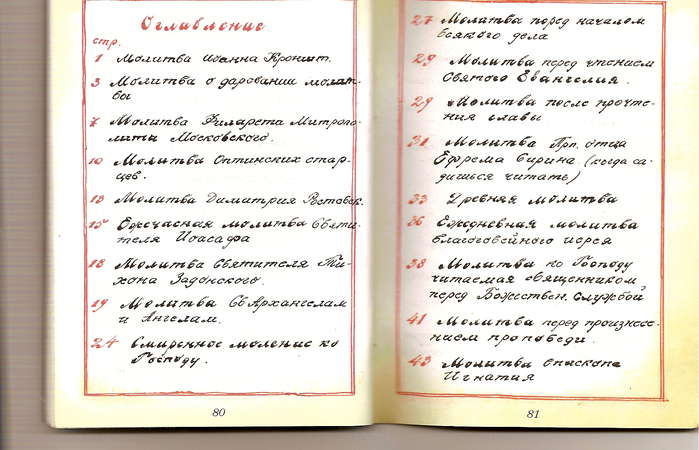 Оглавление
стр.
1 Молитва Иоанна Кроншт.
3 Молитва о даровании молит-
вы
7 Молитва Филарета Митропо-
лита Московского.
10 Молитва Оптинских стар-
цев.
13 Молитва Димитрия Ростовск.
15 Ежечасная молитва Святи-
теля Иоасафа
18 Молитва Святителя Ти-
хона Задонского.
19 Молитва Св Архангелам
и Ангелам.
24 Смиренное моление ко
Господу.
80
27 Молитва перед началом
всякого дела
29 Молитва перед чтением
Святого Евангелия.
29 Молитва после прочте-
ния главы
31 Молитва Прп. отца
Ефрема Сирина (когда са-
дишься читать)
33 Древняя молитва
36 Ежедневная молитва
благоговейного иерея
38 Молитва ко Господу
читаемая священником,
перед Божествен. службой
41 Молитва перед произнесе-
нием проповеди.
43 Молитва епископа
Игнатия
81